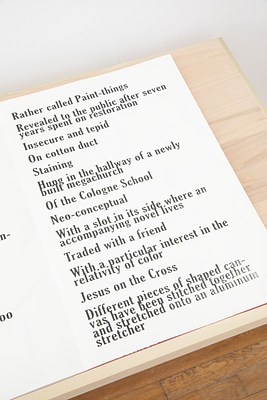 Rather called Paint-things
Revealed to the public after seven
years spent on restoration
Insecure and tepid
On cotton duct
Staining
Hung in the hallway of a newly
built megachurch
Of the Cologne School
Neo-conceptual
With a slot in its side where an
accompanying novel lives
Traded with a friend
With a particular interest in the
relativity of color
Jesus on the Cross
Different pieces of shaped can-
vas have been stitched together
and stretched onto an aluminum
stretcher
n-
oo